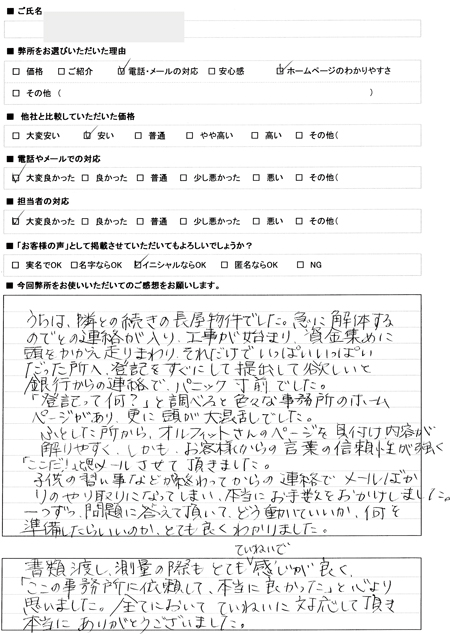 ■ ご氏名
■ 弊所をお選びいただいた理由
□ 価格 □ご紹介 ☑ 電話・メールの対応 □ 安心感 ☑ ホームページのわかりやすさ
□ その他 ( )
■ 他社と比較していただいた価格
□ 大変安い ☑ 安い □ 普通 □ やや高い □ 高い □ その他(
■ 電話やメールでの対応
☑ 大変良かった □ 良かった □ 普通 □ 少し悪かった □ 悪い □ その他(
■ 担当者の対応
☑ 大変良かった □ 良かった □ 普通 □ 少し悪かった □ 悪い □ その他(
■ 「お客様の声」として掲載させていただいてもよろしいでしょうか?
□ 実名でOK □名字ならOK ☑イニシャルならOK □ 匿名ならOK □ NG
■ 今回弊所をお使いいただいてのご感想をお願いします。
うちは、隣との続きの長屋物件でした。急に解体する
のでとの連絡が入り、工事が始まり、資金集めに
頭をかかえ走りまわり、それだけでいっぱいいっぱい
だった所へ、登記をすぐにして提出して欲しいと
銀行からの連絡で、パニック寸前でした。
「登記って何?」と調べると色々な事務所のホーム
ページがあり、更に頭が大混乱でした。
ふとした所から、オルフィットさんのページを見付け内容が
解りやすく、しかも、お客様からの言葉の信頼性が強く
「ここだ!」と思いメールさせて頂きました。
子供の習い事などが終わってからの連絡でメールばか
りのやり取りになってしまい、本当にお手数をおかけしました。
一つずつ、問題に答えて頂いて、どう動いていいか、何を
準備したらいいのか、とても良くわかりました。
書類渡し、測量の際もとてもていねいで感じが良く、
「ここの事務所に依頼して、本当に良かった」と心より
思いました。全てにおいてていねいに対応して頂き
本当にありがとうございました。